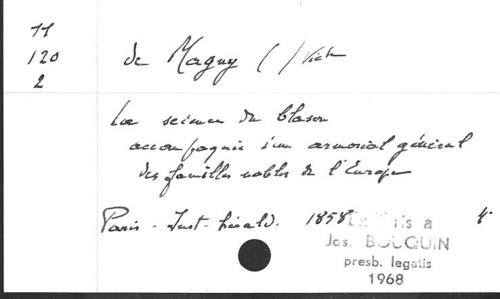 11
120
2
de Magny ( ) Victe
La science du blason
accompagnée d'un armorial général
des familles nobles de l'Europe
Paris - Inst. hérald. 1858 4°
Ex libris a
Jos. BOUQUIN
presb. legatis
1968